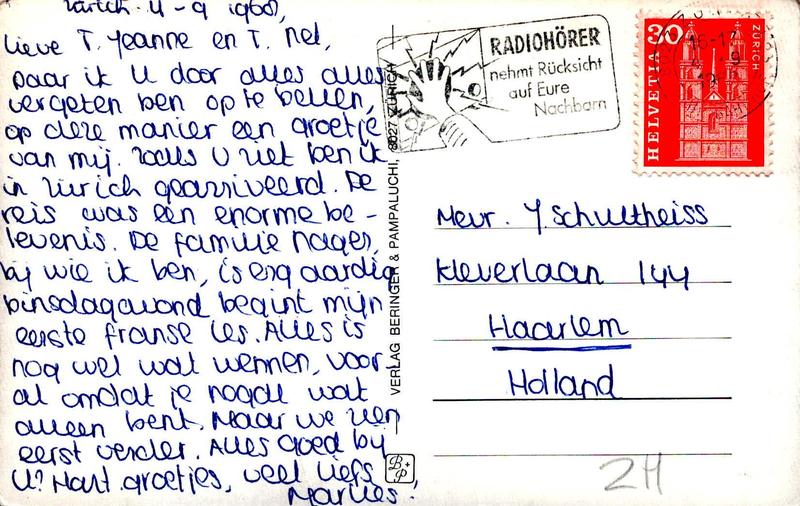 Zürich. 4-9 1968,
Lieve T. Jeanne en T. Nel,
Daar ik U door alles alles
vergeten ben op te bellen,
op deze manier een groetje
van mij. Zoals U ziet ben ik
in Zürich gearriveerd. De
reis was een enorme be-
levenis. De familie Nager,
bij wie ik ben, is erg aardig
Dinsdagavond begint mijn
eerste franse les. Alles is
nog wel wat wennen, voor
al omdat je nogal wat
alleen bent. Maar we zien
eerst verder. Alles goed bij
U? Hart. groetjes, veel liefs
Marlies.
VERLAG BERINGER & PAMPALUCHI, 8027 ZÜRICH
B+P
RADIOHÖRER
nehmt Rücksicht
auf Eure
Nachbarn
30
ZÜRICH
HELVETIA
Mevr. J. Schultheiss
Kleverlaan 144
Haarlem
Holland
ZH